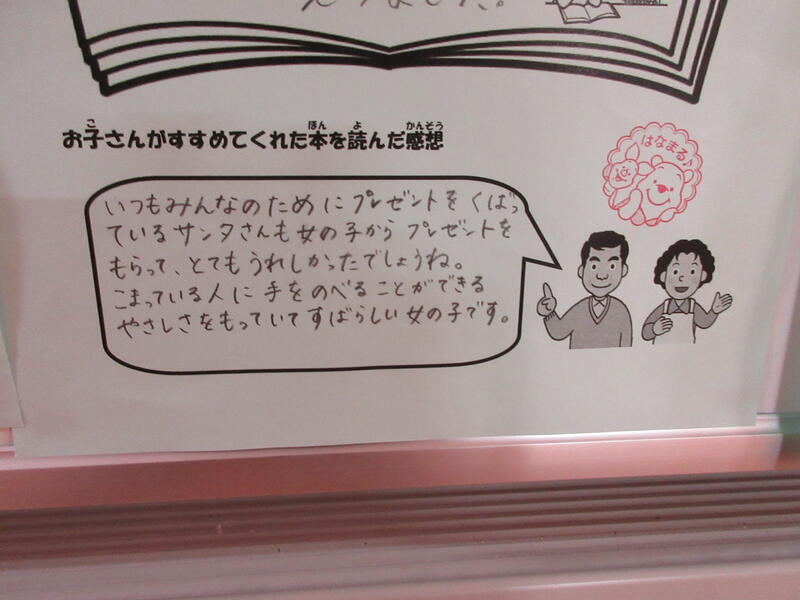 お子さんがすすめてくれた本を読んだ感想
はなまる♪
いつもみんなのために プレゼントを くばっ
ているサンタさんも女の子から プレゼントを
もらって、とても うれしかったでしょうね。
こまっている人に 手をのべることができる
やさしさをもっていて すばらしい 女の子です。